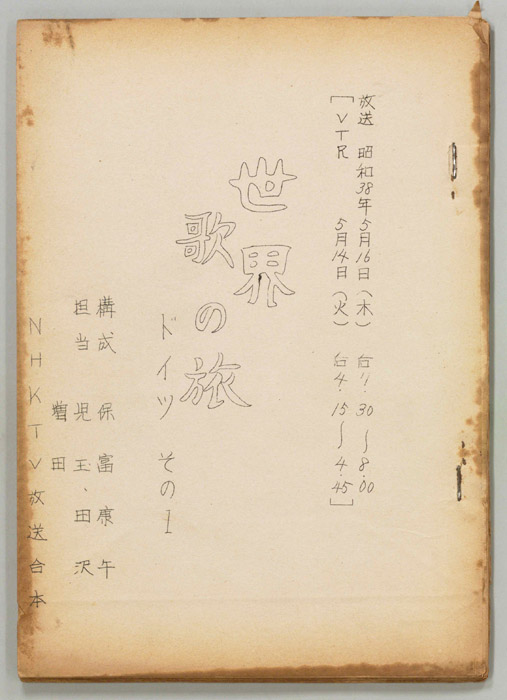 放送 昭和38年5月16日（木） 后7.30～8.00
［VTR 5月14日（火） 后4.15～4.45］
世界
歌の旅
ドイツ その1
構成 保富康午
担当 児玉、田沢
増田
NHKTV放送台本